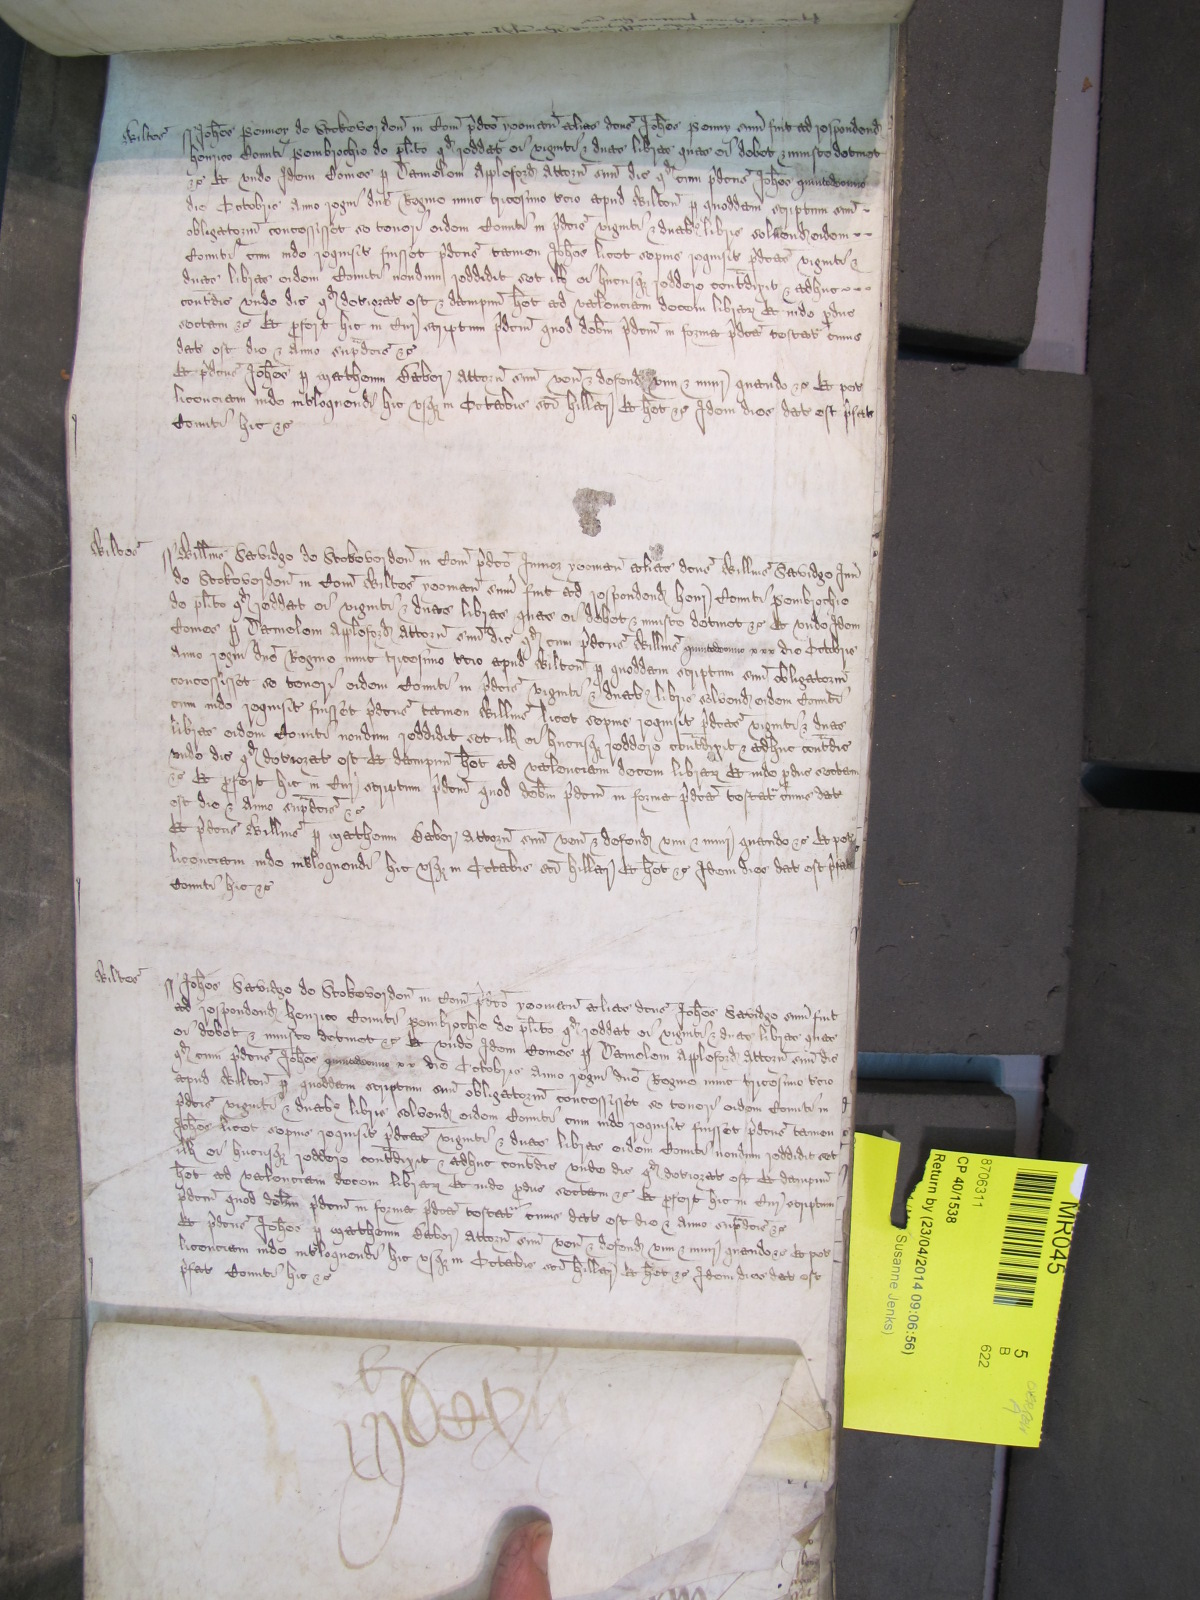 Wiltes
Joh̃es Penner de Stokeverdon in Com̃ p̃dc̃o yoman alias dc̃us Joh̃es Penny sum̃ fuit ad respondend
Henrico Comiti Pembrochie de pl̃ito qđ reddat ei viginti & duas libras quas ei debet & iniuste detinet
&c Et unde Idem Comes p Damelem Appleford Attorn̄ suū dic̃ qđ cum p̃dc̃us Joh̃es quintodecimo
die Octobris Anno regni dñe Regine nunc tricesimo t̃cio apud Wilton p quoddam scriptum suū
obligatoriū concessisset se teneri eidem Comiti in p̃dc̃is viginti & duab₃ libris solvend eidem
Comiti cum inde requisit̃ fuisset p̃dc̃us tamen Joh̃es licet sepius requisit̃ p̃dc̃as viginti &
duas libras eidem Comiti nondum reddidit set ill̃ ei hucusq₃ reddere cont̃dixit & adhuc
cont̃dic̃ unde dic̃ qđ deteriorat̃ est & dampnū h̃et ad valenciam decem librar₄ Et inde p̃duc̃
sectam &c Et p̃fert hic in Cur̃ scriptum p̃dc̃m quod deb̃m p̃dc̃m in forma p̃dc̃a testat̃ cuius
dat̃ est die & Anno sup̃dc̃is &c
Et p̃dc̃us Joh̃es p Matheum Attorn̄ suū veñ & defend vim & iniur̃ quando &c Et pet̃
licenciam inde int̃loquendi hic usq₃ in Octabis sc̃i Hillar̃ Et h̃et &c Idem dies dat̃ est p̃fat̃
Comiti hic &c
Wiltes
Will̃ms Savidge de Stokeverdon in Com̃ p̃dc̃o Junior yoman alias dc̃us Will̃ms Savidge Jun̄
de Stokeverdon in Com̃ Wiltes yoman sum̃ fuit ad respondend Henr̃ Comiti Pembrochie
de pl̃ito qđ reddat ei viginti & duas libras quas ei debet & iniuste detinet &c Et unde Idem
Comes p Damelem Appleford Attorn̄ suū dic̃ qđ cum p̃dc̃us Will̃ms xxx die Octobris
Anno regni dñe Regine nunc tricesimo t̃cio apud Wilton p quoddam scriptum suū obligatoriū
concessisset se teneri eidem Comiti in p̃dc̃is viginti & duab₃ libris solvend eidem Comiti
cum inde requisit̃ fuisset p̃dc̃us tamen Will̃ms licet sepius requisit̃ p̃dc̃as viginti & duas
libras eidem Comiti nondum reddidit set ill̃ ei hucusq₃ reddere cont̃dixit & adhuc cont̃dic̃
unde dic̃ qđ deteriorat̃ est Et dampnū h̃et ad valenciam decem librar₄ Et inde p̃duc̃ sectam
&c Et p̃fert hic in Cur̃ scriptum p̃dc̃m quod deb̃m p̃dc̃m in forma p̃dc̃a testat̃ cuius dat̃
est die & Anno sup̃dc̃is &c
Et p̃dc̃us Will̃ms p Matheum Attorn̄ suū veñ & defend vim & iniur̃ quando &c Et pet̃
licenciam inde int̃loquendi hic usq₃ in Octabis sc̃i Hillar̃ Et h̃et &c Idem dies dat̃ est p̃fat̃
Comiti hic &c
Wiltes
Joh̃es Savidge de Stokeverdon in Com̃ p̃dc̃o yoman alias dc̃us Joh̃es Savidge sum̃ fuit
ad respondend Henrico Comiti Pembrochie de pl̃ito qđ reddat ei viginti & duas libras quas
ei debet & iniuste detinet &c Et unde Idem Comes p Damelem Appleford Attorn̄ suū dic̃
qđ cum p̃dc̃us Joh̃es xx die Octobris Anno regni dñe Regine nunc tricesimo t̃cio
apud Wilton p quoddam scriptum suū obligatoriū concessisset se teneri eidem Comiti in
p̃dc̃is viginti & duab₃ libris solvend eidem Comiti cum inde requisit̃ fuisset p̃dc̃us tamen
Joh̃es licet sepius requisit̃ p̃dc̃as viginti & duas libras eidem Comiti nondum reddidit set
ill̃ ei hucusq₃ reddere cont̃dixit & adhuc cont̃dic̃ unde dic̃ qđ deteriorat̃ est Et dampnū
h̃et ad valenciam decem librar₄ Et inde p̃duc̃ sectam &c Et p̃fert hic in Cur̃ scriptum
p̃dc̃m quod deb̃m p̃dc̃m in forma p̃dc̃a testat̃ cuius dat̃ est die & Anno sup̃dc̃is &c
Et p̃dc̃us Joh̃es p Matheum Attorn̄ suū veñ & defend vim & iniur̃ quando &c Et pet̃
licenciam inde int̃loquendi hic usq₃ in Octabis sc̃i Hillar̃ Et h̃et &c Idem dies dat̃ est
p̃fat̃ Comiti hic &c
MR045
5
B
622
8706311
CP 40/1538
Return by (23/04/2014 09:06:56)
Susanne Jenks)